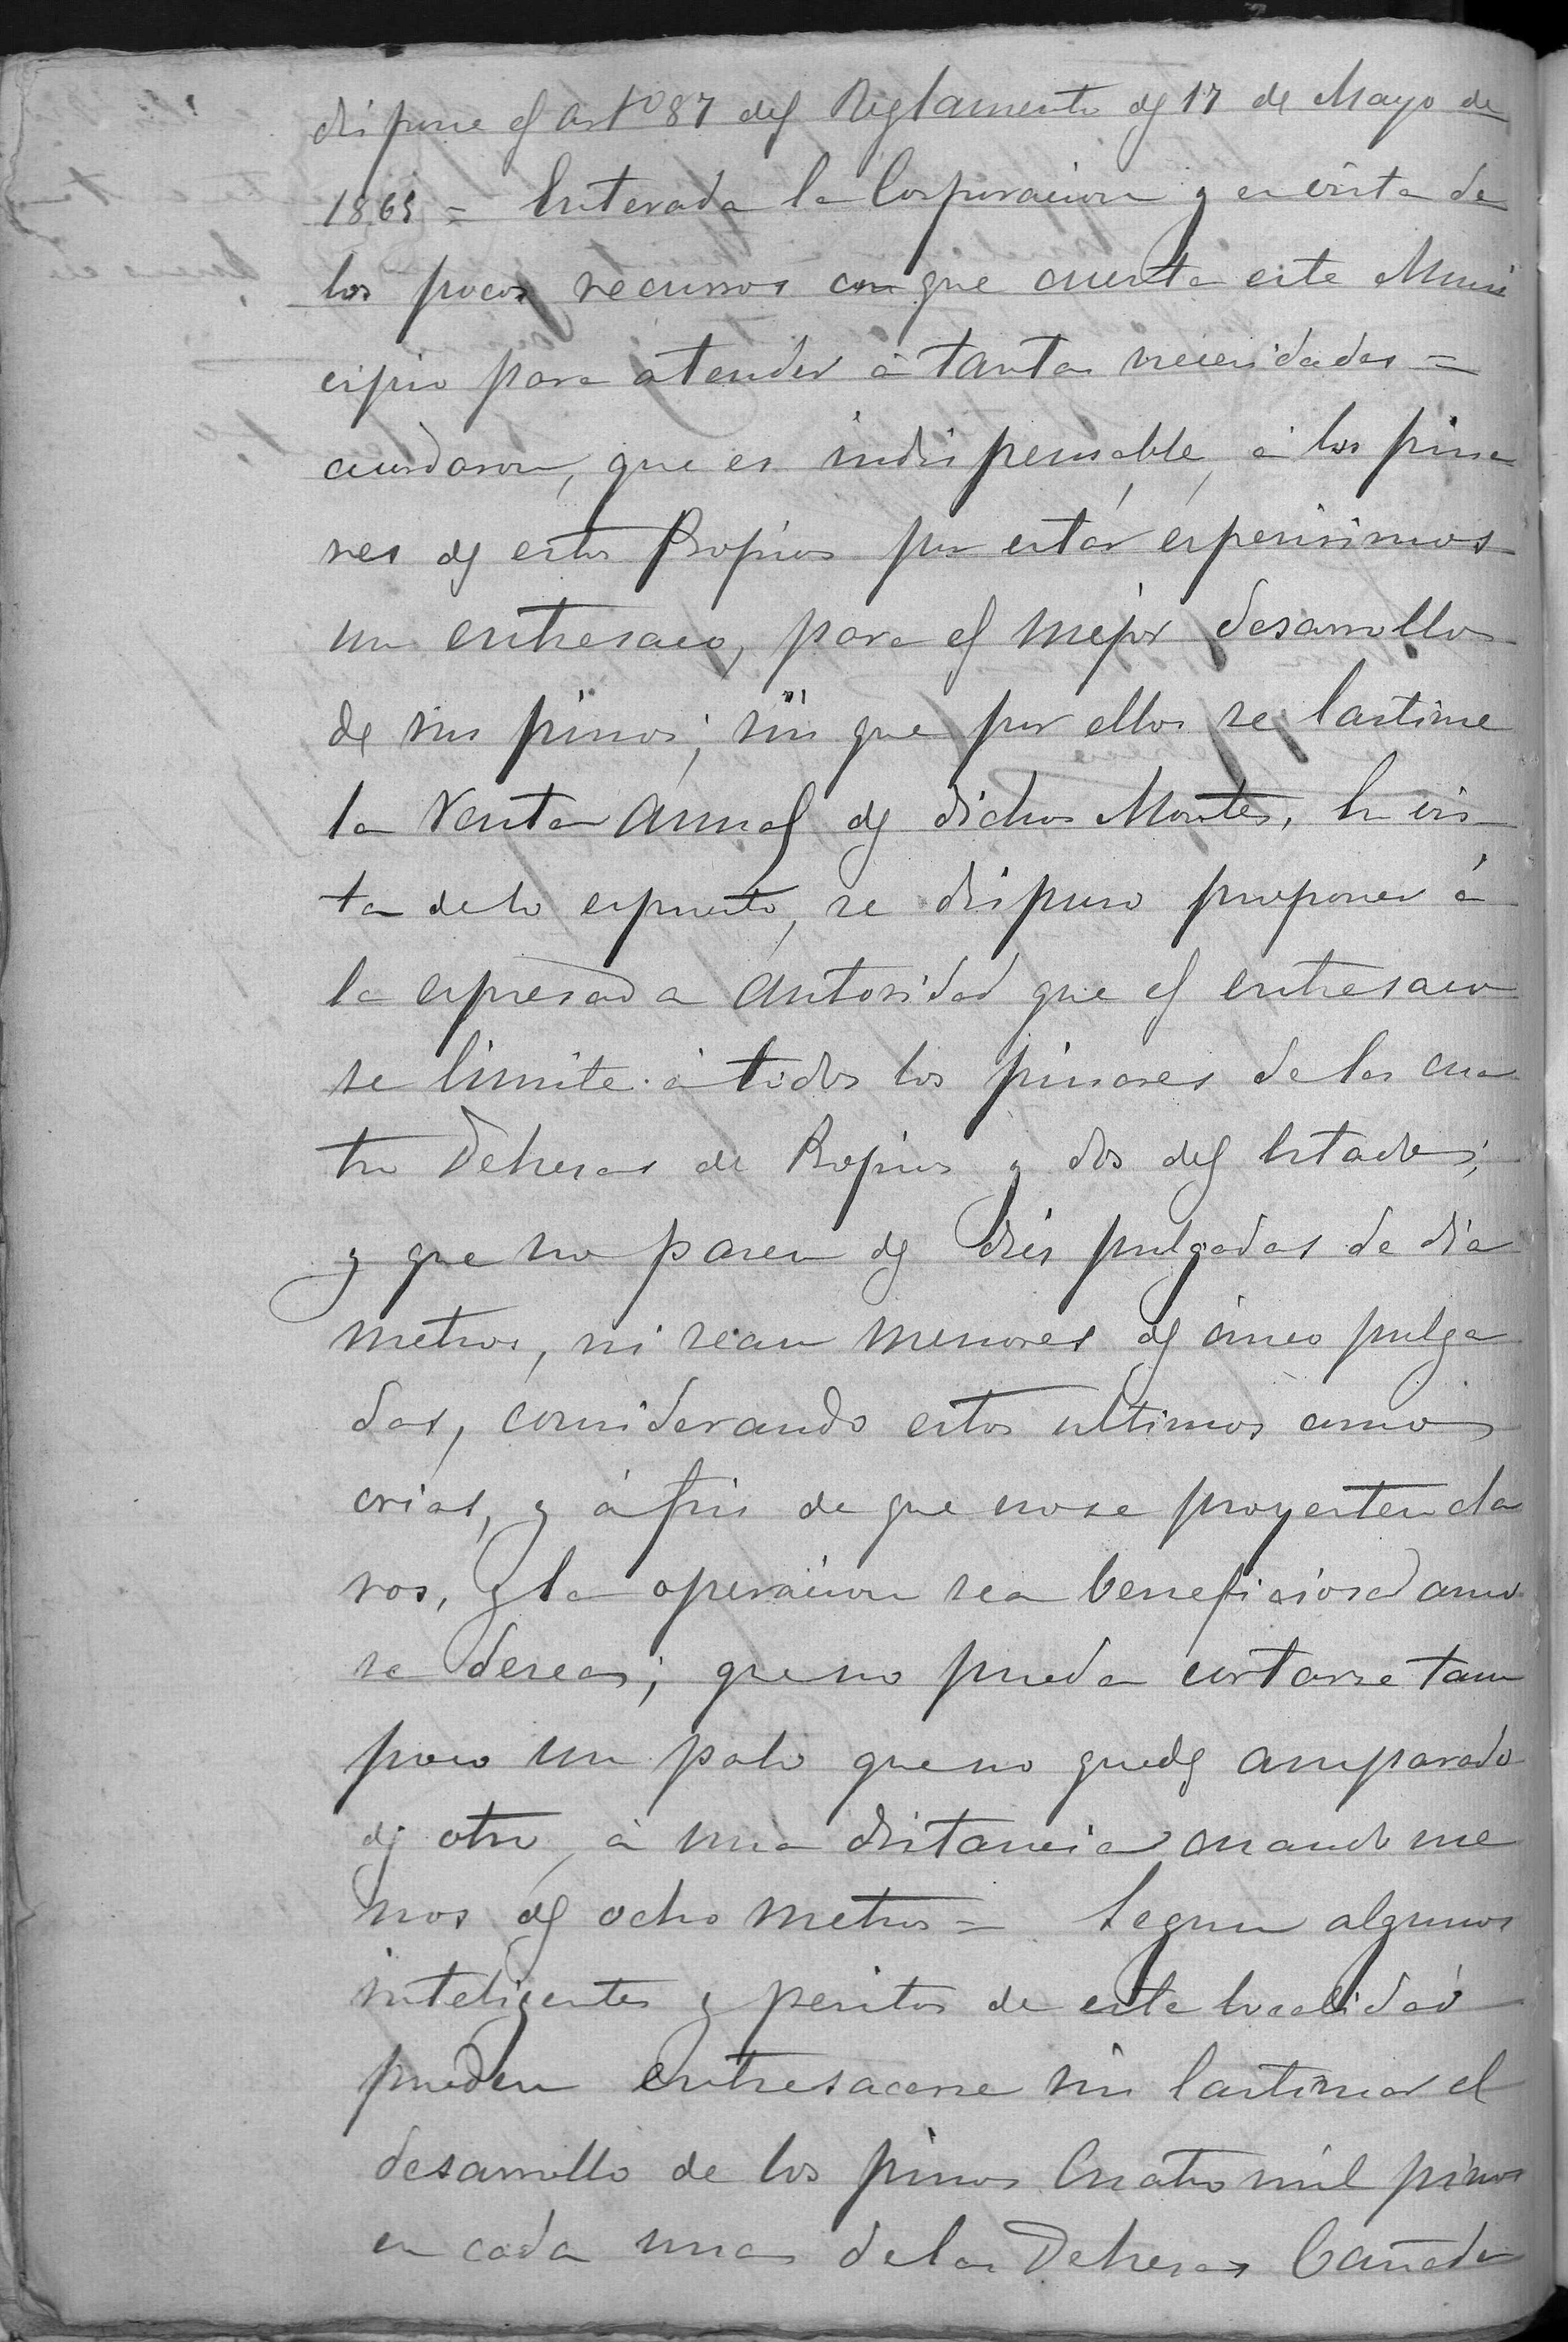 dispone el artº 87 del Reglamento de 17 de Mayo de
1865 = Enterada la Corporacion y en vista de
los pocos recursos con que cuenta este Muni
cipio para atender á tantas necesidades =
acordaron, que es indispensable, á los pina
res de estos Propios por estár espesisimos
un entresaco, para el mejor desarrollo
de sus pinos; sin que por ellos se lastime
la renta anual de dichos Montes. En vis
ta de lo espuesto, se dispuso proponer á
la espresada autoridad que el entresaco
se limite á todos los pinares de las cua
tro Dehesas de Propios y dos del Estado;
y que no pasen de diés pulgadas de dia
metros, ni sean menores de cinco pulga
das, considerando estos ultimos como
crias, y á fin de que no se proyecten cla
ros, y la operacion sea beneficiosa como
se desea; que no pueda cortarse tam
poco un palo que no quede amparado
de otro, á una distancia cuando me
nos de ocho metros = Segun algunos
inteligentes y peritos de esta localidad
pueden entresacarse sin lastimar el
desarrollo de los pinos Cuatro mil pinos
en cada una de las Dehesas Cañada